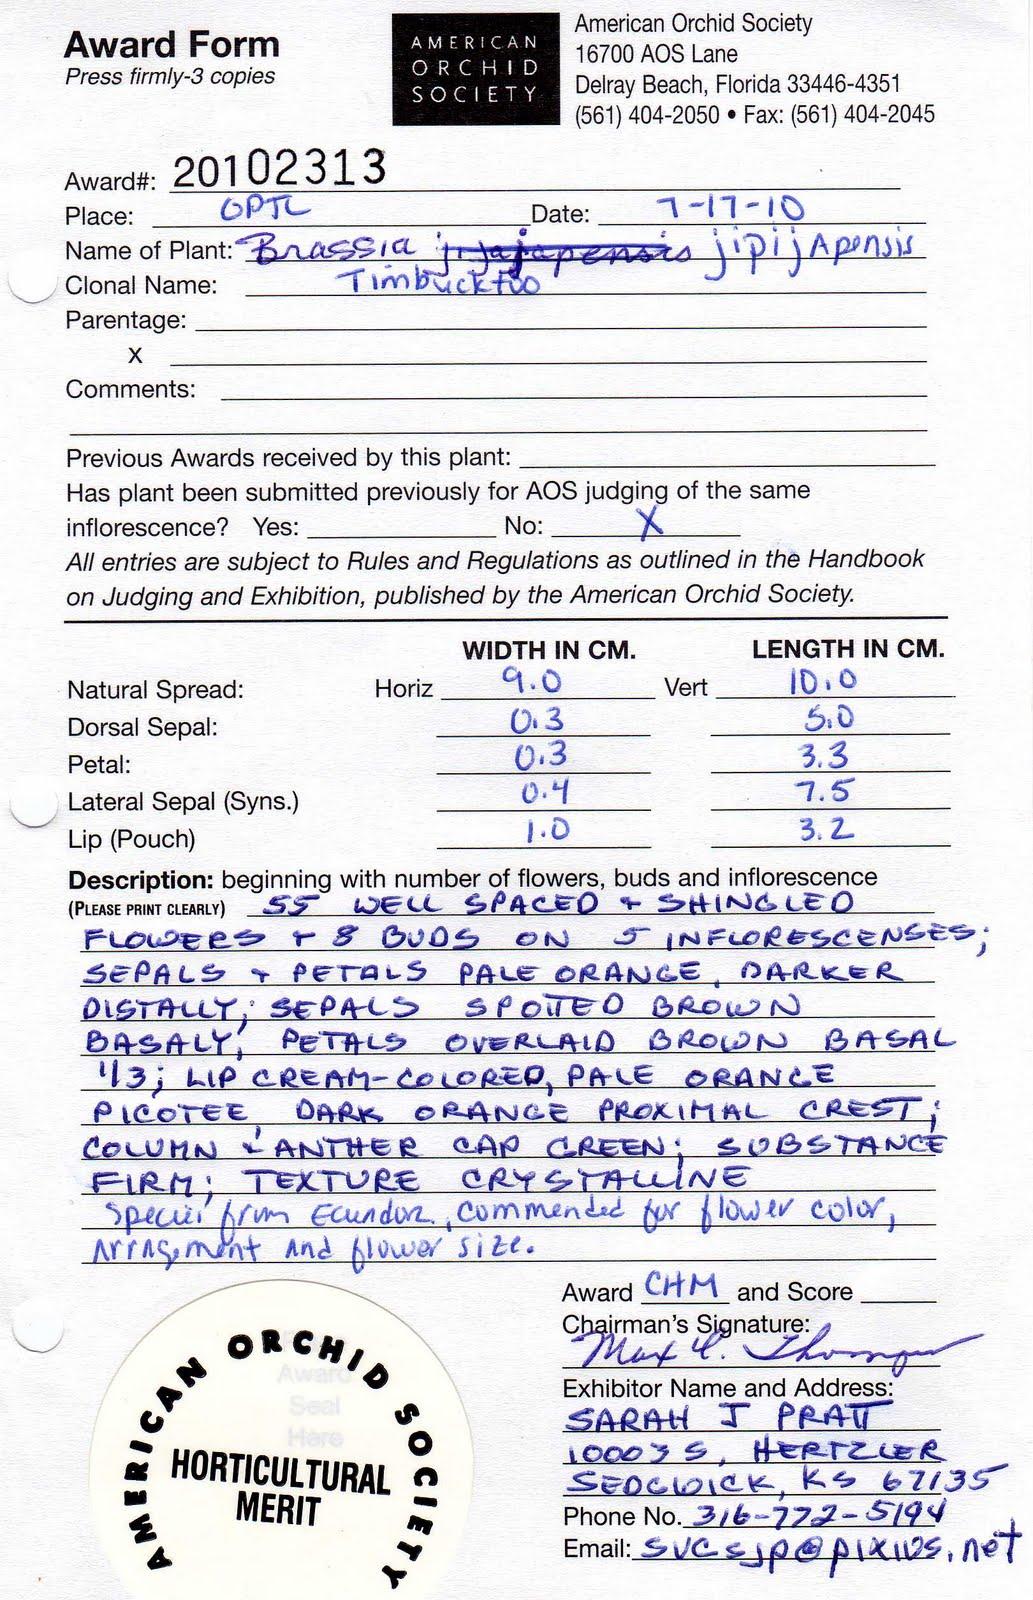 Award Form
Press firmly-3 copies
AMERICAN
ORCHID
SOCIETY
American Orchid Society
16700 AOS Lane
Delray Beach, Florida 33446-4351
(561) 404-2050 • Fax: (561) 404-2045
Award#: 20102313
Place: OPTL Date: 7-17-10
Name of Plant: Brassia jipijApensis
Clonal Name: Timbucktoo
Parentage:
x
Comments:
Previous Awards received by this plant:
Has plant been submitted previously for AOS judging of the same
inflorescence? Yes: No: X
All entries are subject to Rules and Regulations as outlined in the Handbook
on Judging and Exhibition, published by the American Orchid Society.
WIDTH IN CM. LENGTH IN CM.
Natural Spread: Horiz 9.0 Vert 10.0
Dorsal Sepal: 0.3 5.0
Petal: 0.3 3.3
Lateral Sepal (Syns.) 0.4 7.5
Lip (Pouch) 1.0 3.2
Description: beginning with number of flowers, buds and inflorescence
(PLEASE PRINT CLEARLY) 55 WELL SPACED + SHINGLED
FLOWERS + 8 BUDS ON 5 INFLORESCENSES;
SEPALS + PETALS PALE ORANGE, DARKER
DISTALLY; SEPALS SPOTTED BROWN
BASALY, PETALS OVERLAID BROWN BASAL
1/3; LIP CREAM-COLORED, PALE ORANGE
PICOTEE, DARK ORANGE PROXIMAL CREST;
COLUMN & ANTHER CAP GREEN; SUBSTANCE
FIRM; TEXTURE CRYSTALLINE
Species from Ecuador, commended for flower color,
Arrngement and flower size.
Award CHM and Score
Chairman's Signature:
Max C. Thompson
Exhibitor Name and Address:
SARAH J PRATT
10003 S, HERTZLER
SEDGWICK, KS 67135
Phone No. 316-772-5194
Email: svcsjp@pixius.net
Award
Seal
Here
AMERICAN ORCHID SOCIETY
HORTICULTURAL
MERIT